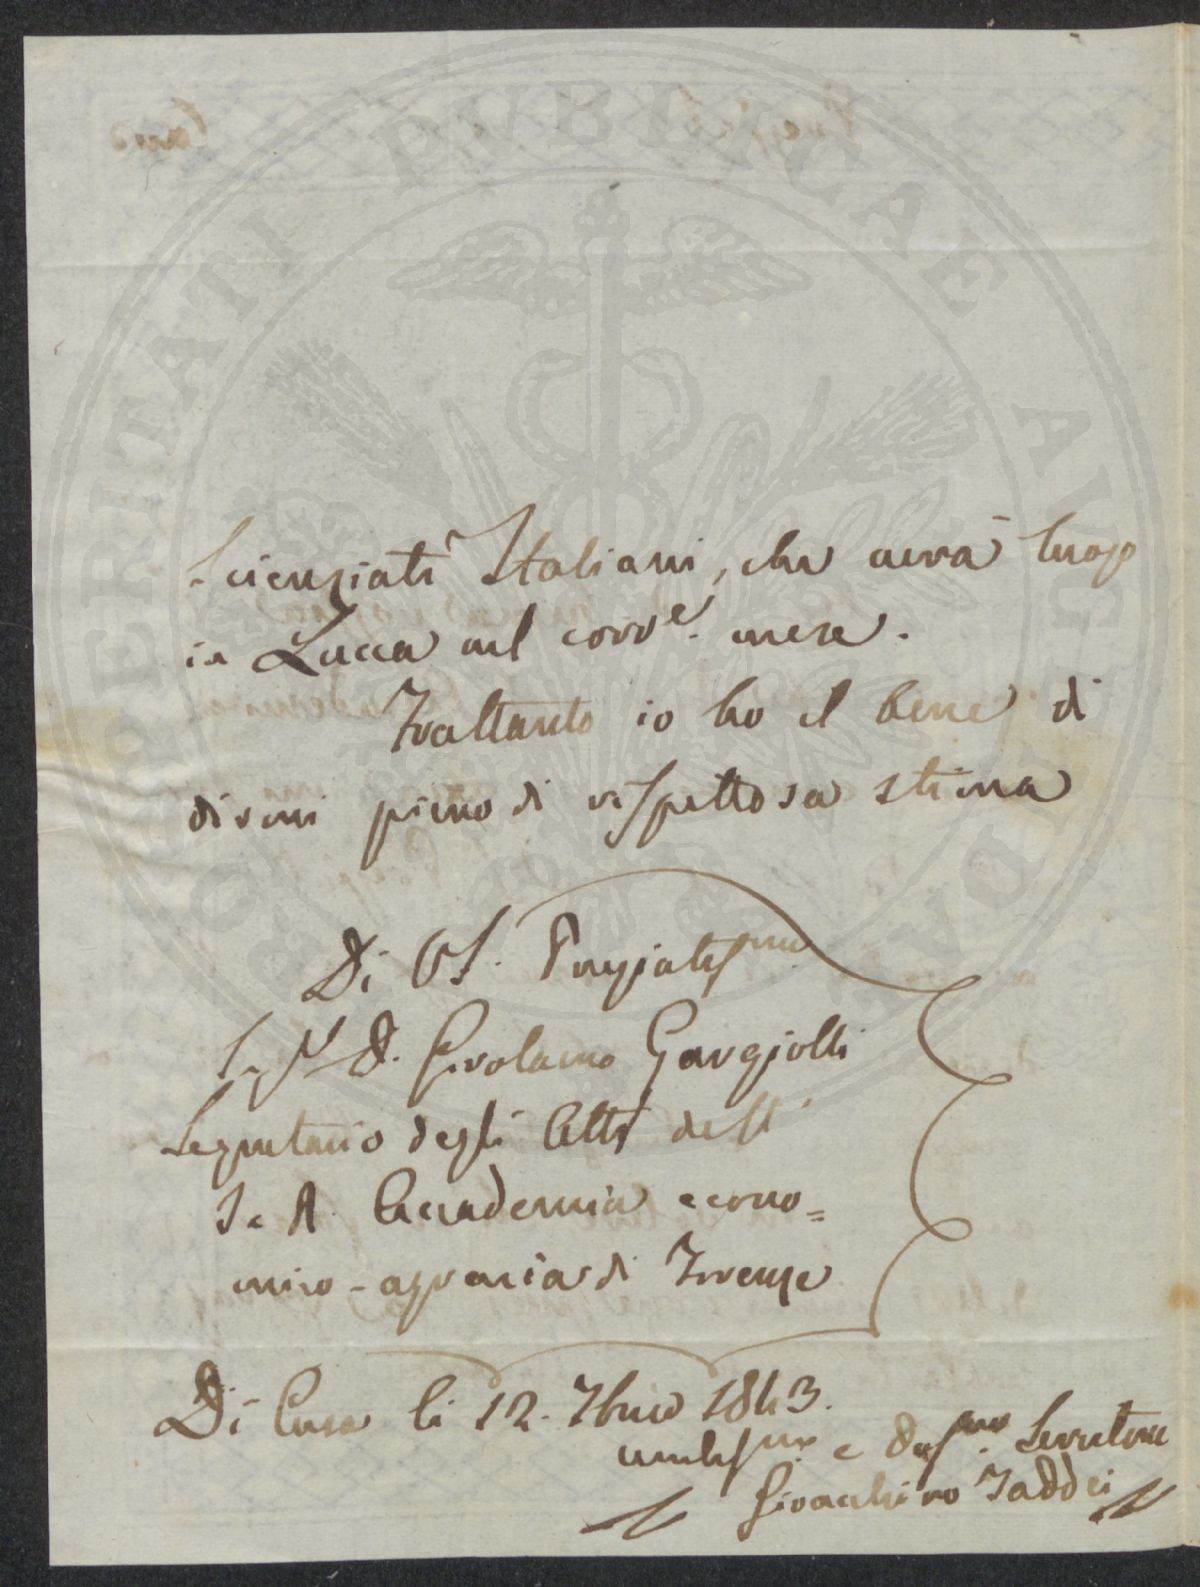 Scienziati Italiani, che avrà luogo
in Lucca nel corr.e mese.
Frattanto io ho il bene di
dirmi pieno di rispettosa stima
Di VS. Pregiatissma
Sig. D. Girolamo Gargiolli
Segretario degli Atti dell'
I. e R. Accademia econo=
mico-agraria di Firenze
Di Casa li 12. 7bre 1843.
umilissmo e Devmo Servitore
Gioacchino Taddei
PROSPERITATI PUBLICAE AUGENDAE